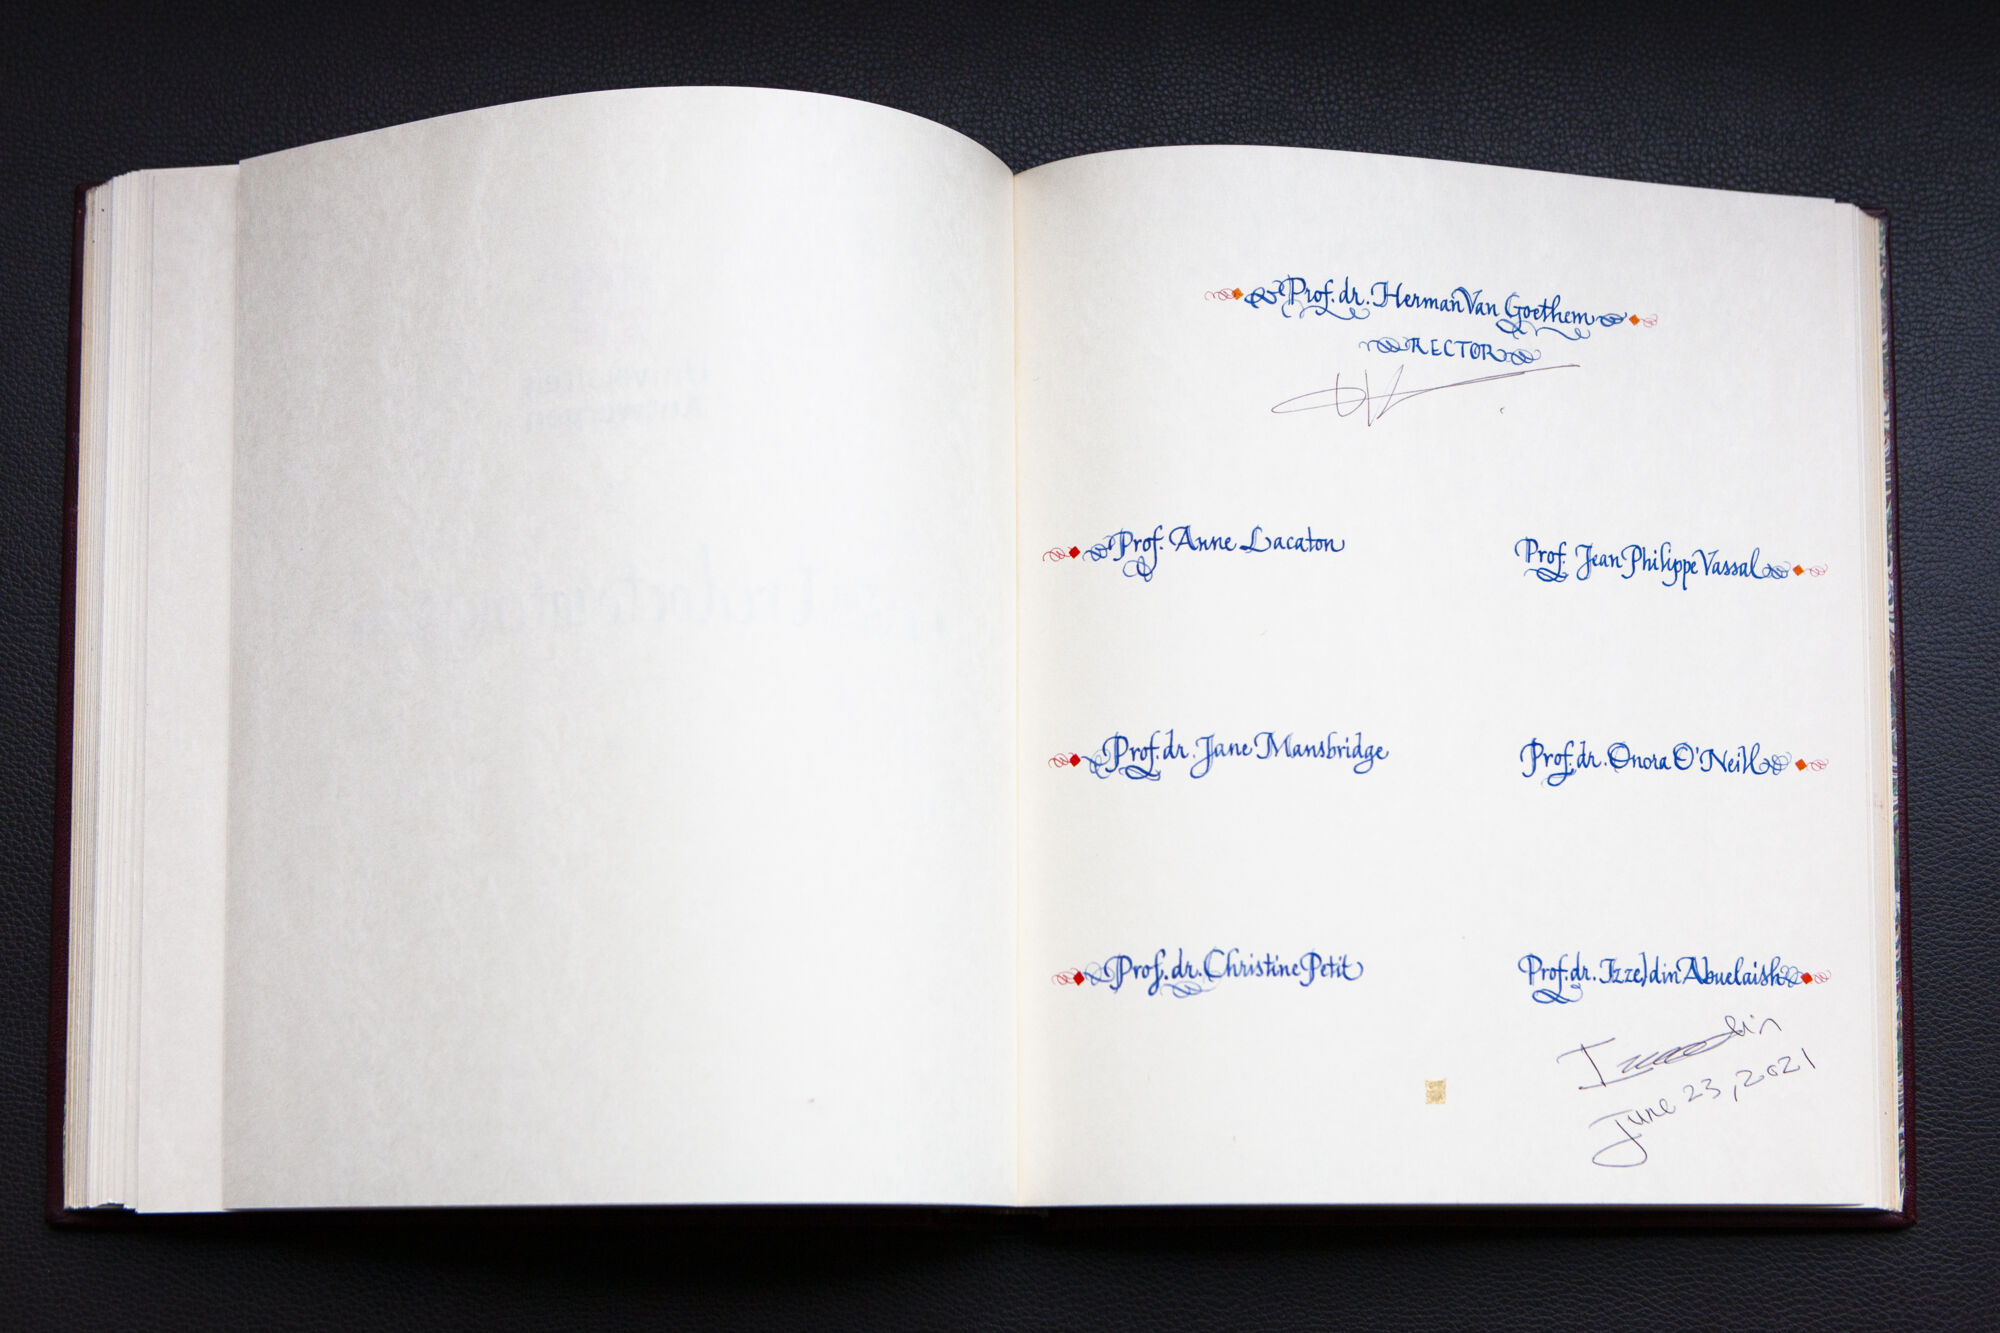 Prof. dr. Herman Van Goethem
RECTOR
Prof. Anne Lacaton
Prof. Jean Philippe Vassal
Prof. dr. Jane Mansbridge
Prof. dr. Onora O'Neill
Prof. dr. Christine Petit
Prof. dr. Izzeldin Abuelaish
June 23, 2021
Universiteit
Antwerpen